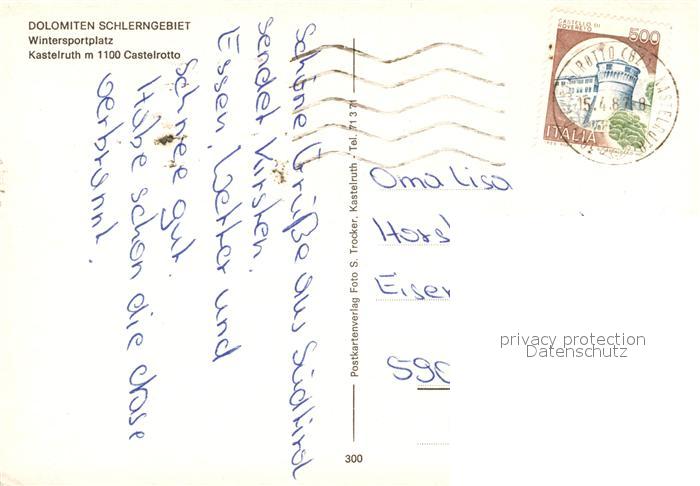 DOLOMITEN SCHLERNGEBIET
Wintersportplatz
Kastelruth m 1100 Castelrotto
Schöne Grüße aus Südtirol
sendet Kirsten.
Essen, Wetter und
Schnee gut.
Habe schon die Nase
verbrannt.
Postkartenverlag Foto S. Trocker, Kastelruth - Tel. 71 3 71
300
CASTELLO DI
ROVERETO
500
ITALIA
15.4.8
Oma Lisa
Hors
Eisen
590
privacy protection
Datenschutz